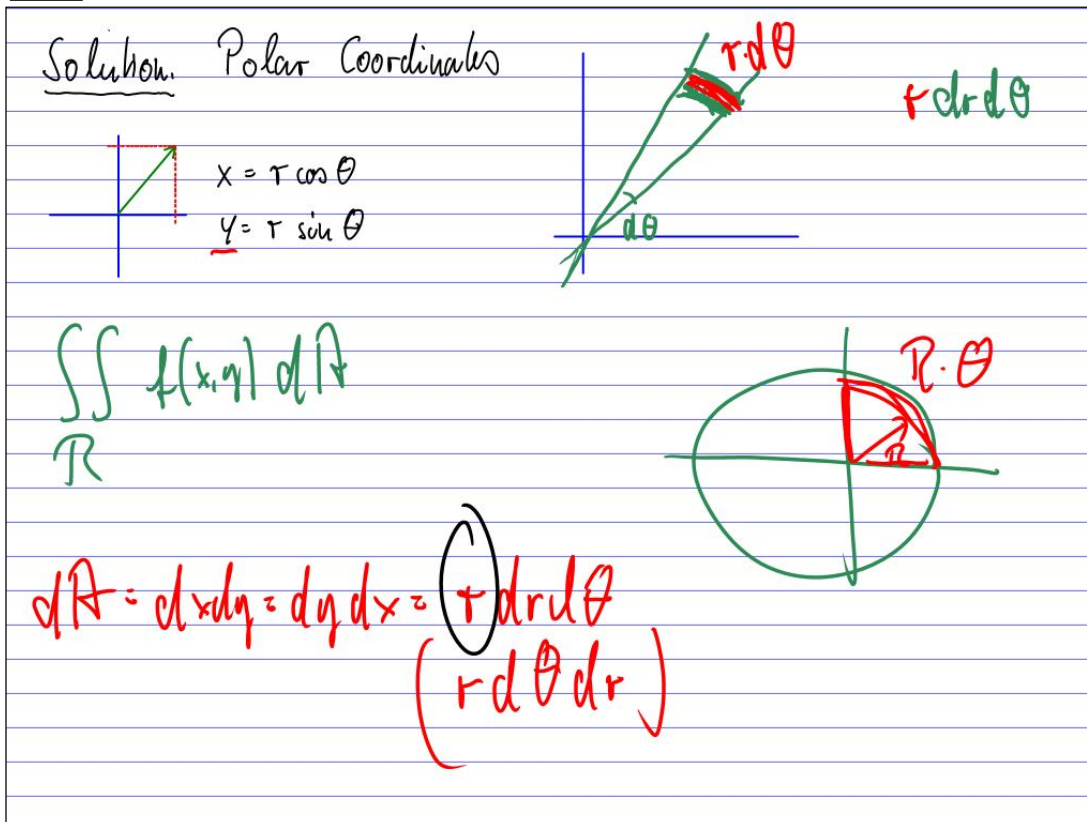 Solution. Polar Coordinates
x = r cos θ
y = r sin θ
r·dθ
r dr dθ
dθ
∬ f(x,y) dA
R
R·θ
R
dA = dxdy = dydx = r drdθ
(r dθ dr)